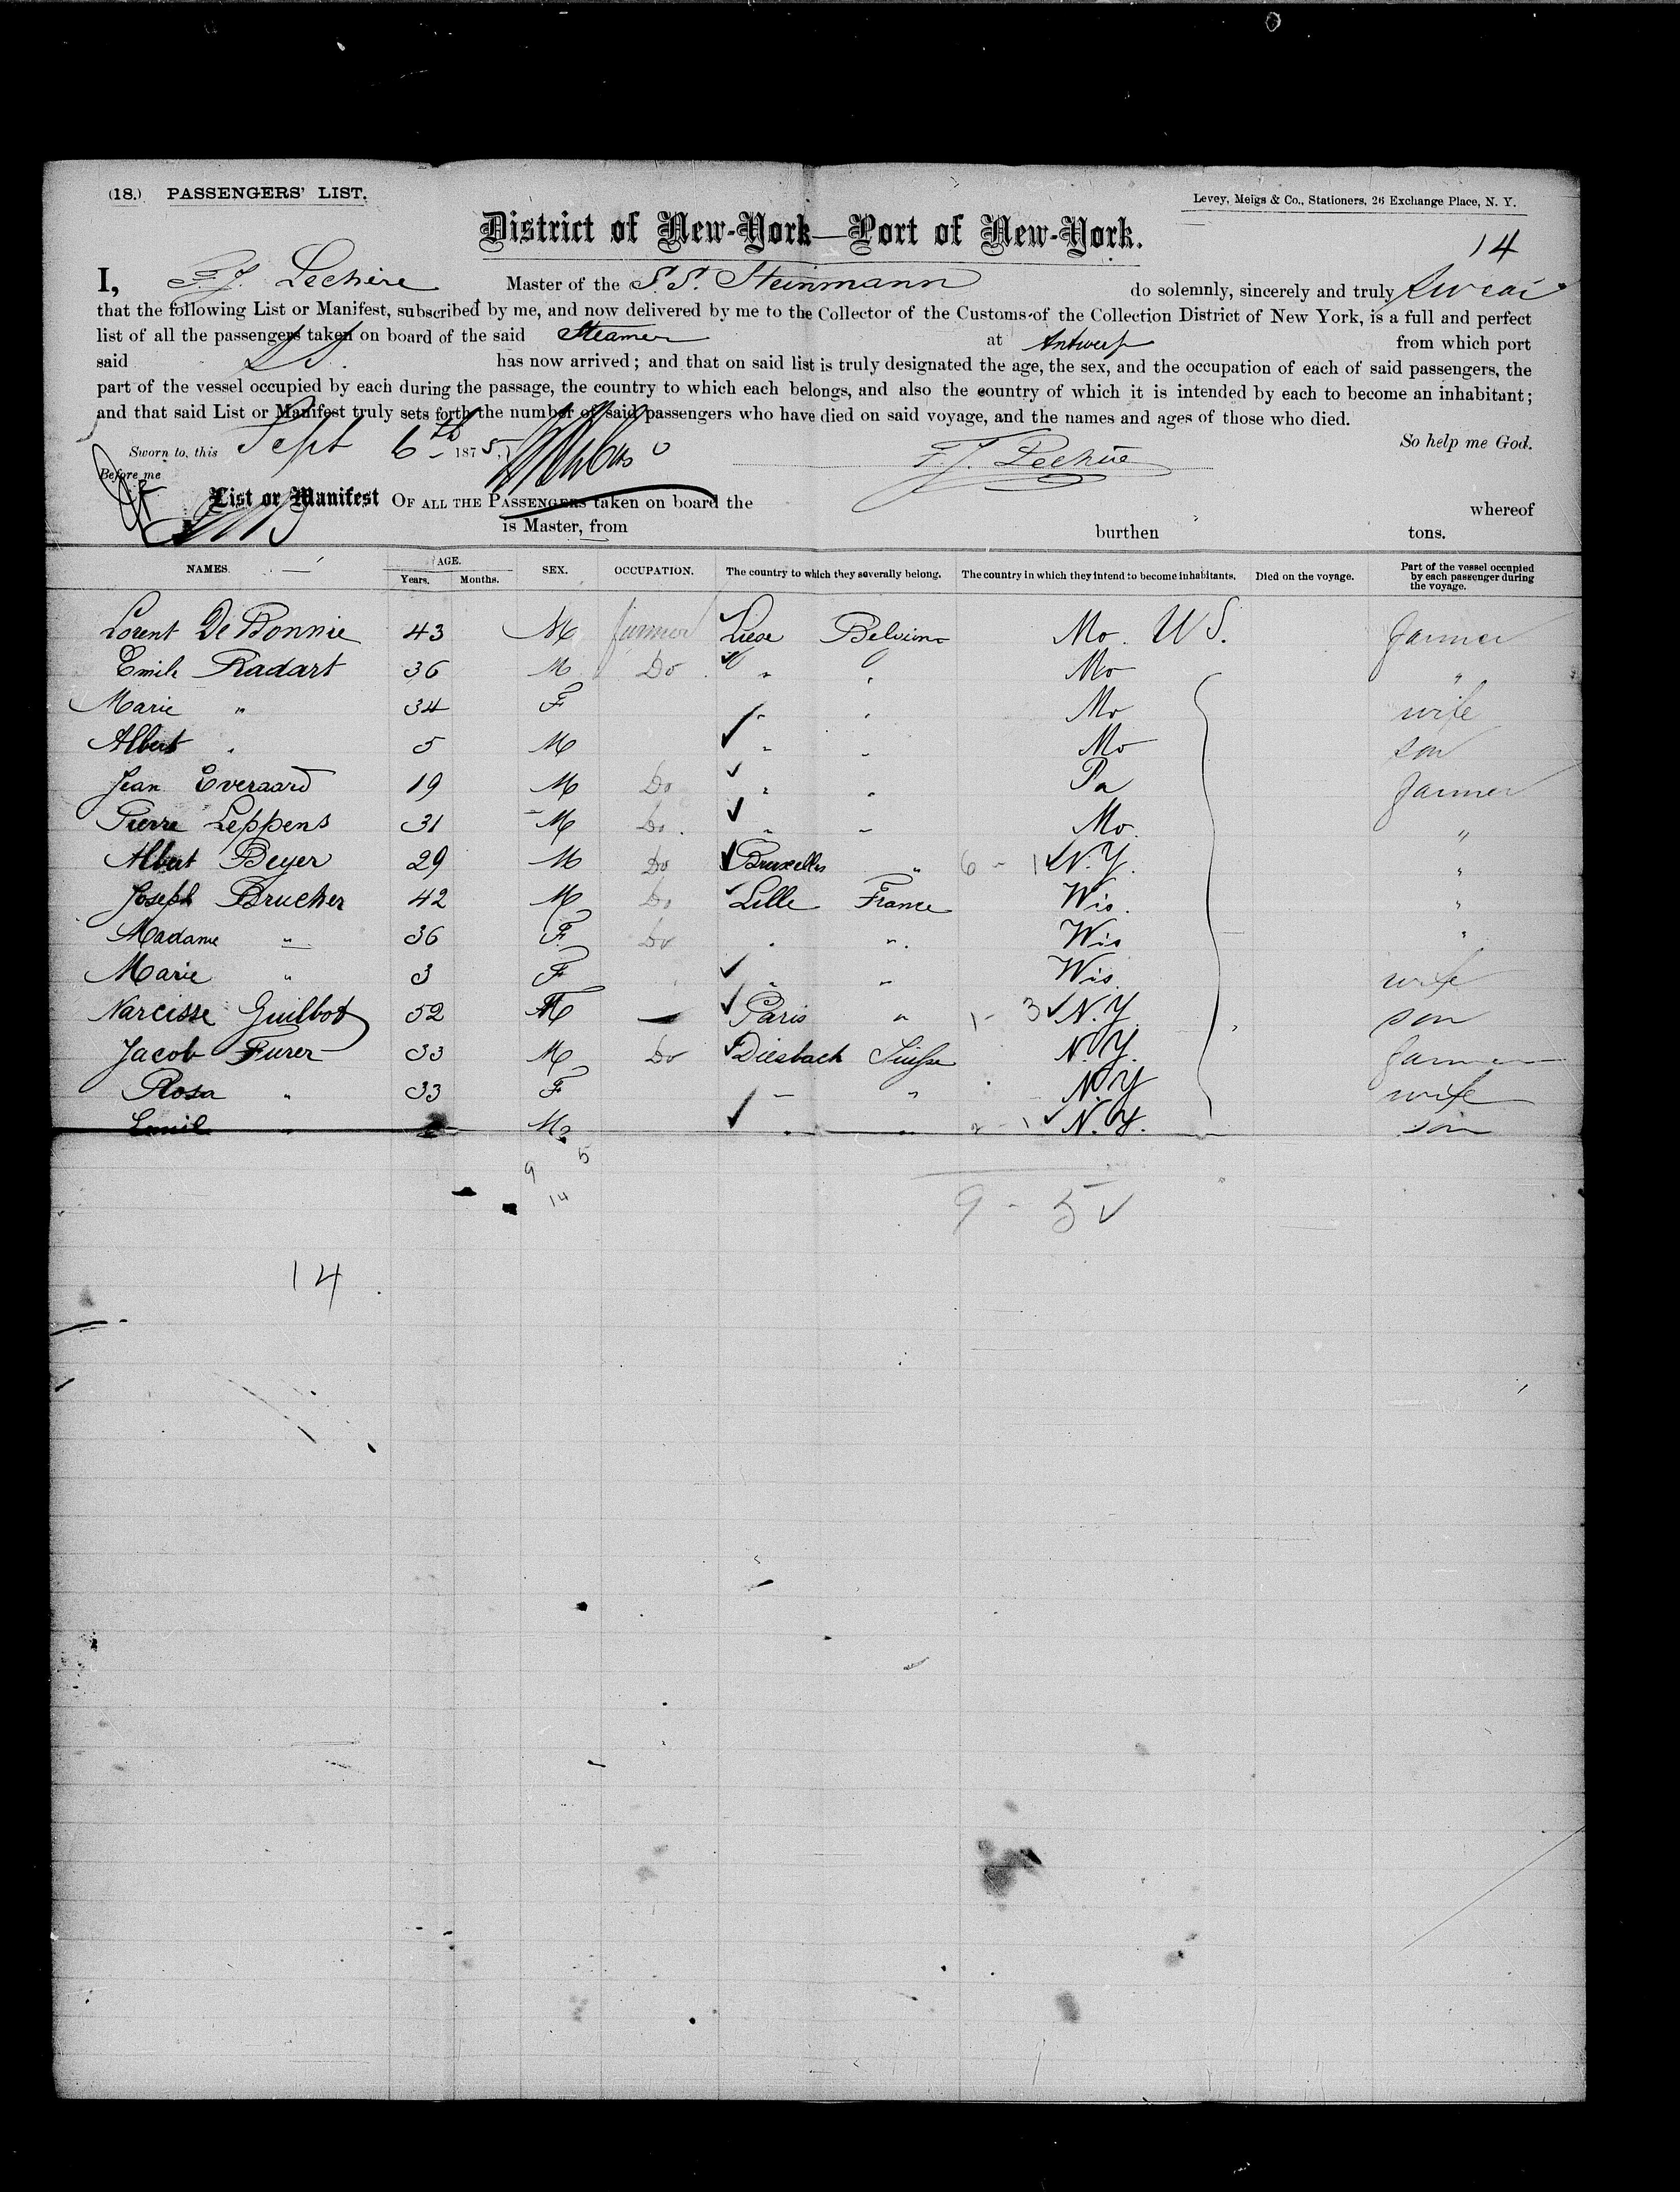 (18.) PASSENGERS' LIST.
Levey, Meigs & Co., Stationers, 26 Exchange Place, N. Y.
District of New-York—Port of New-York.
14
I, F. J. Lechère Master of the S.S. Steinmann do solemnly, sincerely and truly swear
that the following List or Manifest, subscribed by me, and now delivered by me to the Collector of the Customs of the Collection District of New York, is a full and perfect
list of all the passengers taken on board of the said Steamer at Antwerp from which port
said S.S. has now arrived; and that on said list is truly designated the age, the sex, and the occupation of each of said passengers, the
part of the vessel occupied by each during the passage, the country to which each belongs, and also the country of which it is intended by each to become an inhabitant;
and that said List or Manifest truly sets forth the number of said passengers who have died on said voyage, and the names and ages of those who died.
So help me God.
Sworn to, this Sept 6th 1875,
F. J. Lechère
Before me
List or Manifest OF ALL THE PASSENGERS taken on board the whereof
is Master, from burthen tons.
NAMES. AGE. Years. Months. SEX. OCCUPATION. The country to which they severally belong. The country in which they intend to become inhabitants. Died on the voyage. Part of the vessel occupied by each passenger during the voyage.
Lorent De Bonnie 43 M farmer Liege Belgium Mo. U S. farmer
Emile Radart 36 M Do " " Mo "
Marie " 34 F " " Mo wife
Albert " 5 M " " Mo son
Jean Everaard 19 M Do " " Pa farmer
Pierre Leppens 31 M Do. " " Mo. "
Albert Beyer 29 M Do Bruxelles " 6 - 1 N.Y. "
Joseph Brucher 42 M Do Lille France Wis. "
Madame " 36 F. Do " " Wis "
Marie " 3 F " " Wis. wife
Narcisse Guilbot 52 M — Paris " 1 - 3 N.Y. son
Jacob Furer 33 M Do Diesbach Suisse N.Y. farmer
Rosa " 33 F " " N.Y wife
Emil " M " " 2 - 1 N.Y. son
9 5
14
9 - 5
14